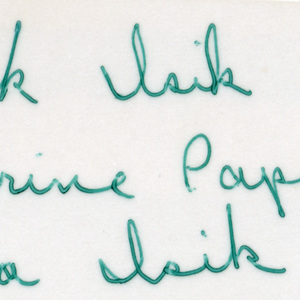 k Isik
rine Pap
a Isik